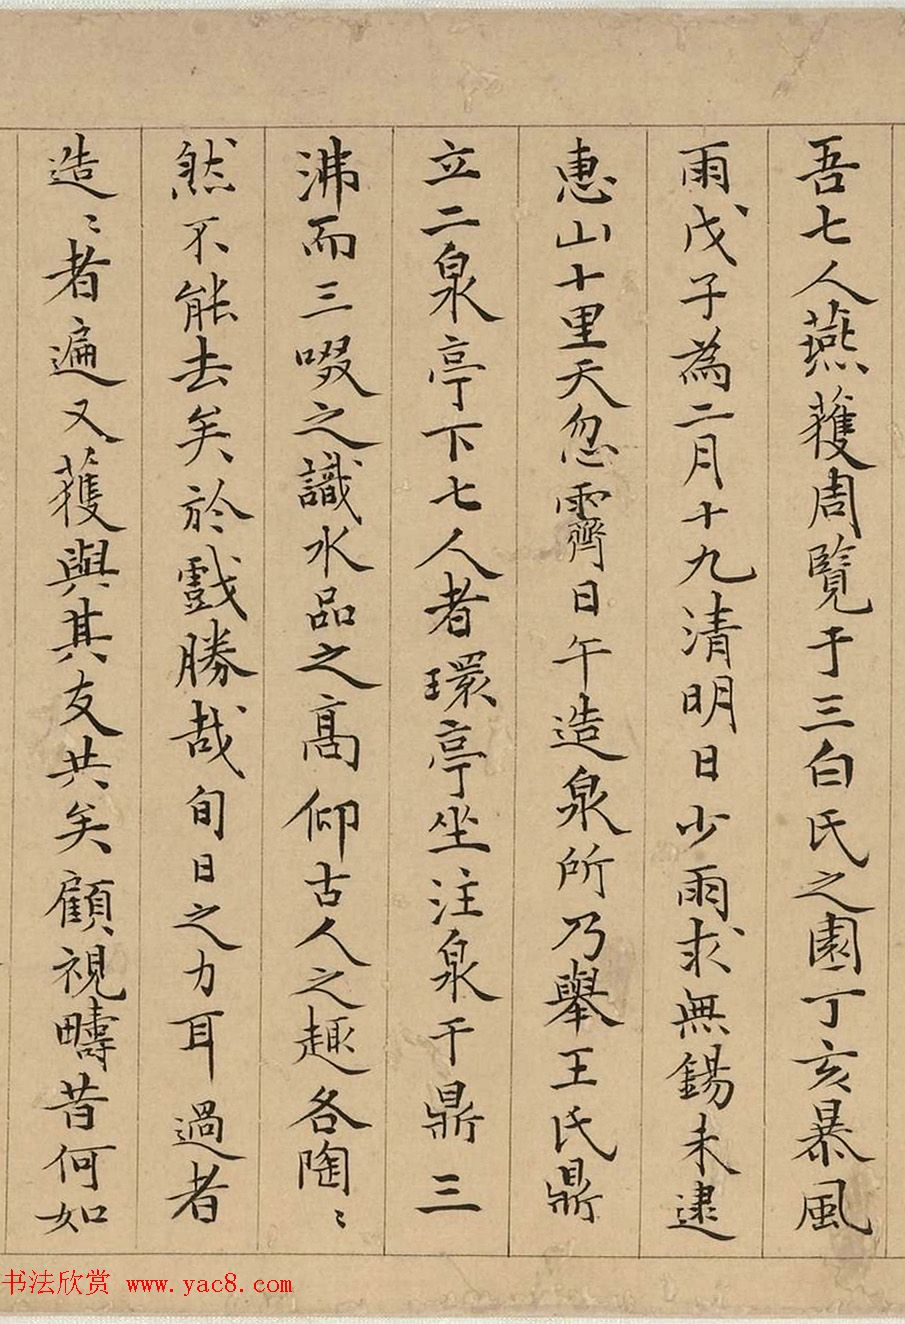 吾七人燕蒦周覽于三白氏之園丁亥暴風
雨戊子為二月十九清明日少雨求無錫未逮
惠山十里天忽霽日午造泉所乃舉王氏鼎
立二泉亭下七人者環亭坐注泉于鼎三
沸而三啜之識水品之高仰古人之趣各陶〻
然不能去矣於戲勝哉旬日之力耳過者
造〻者遍又獲與其友共矣顧視疇昔何如
书法欣赏 www.yac8.com